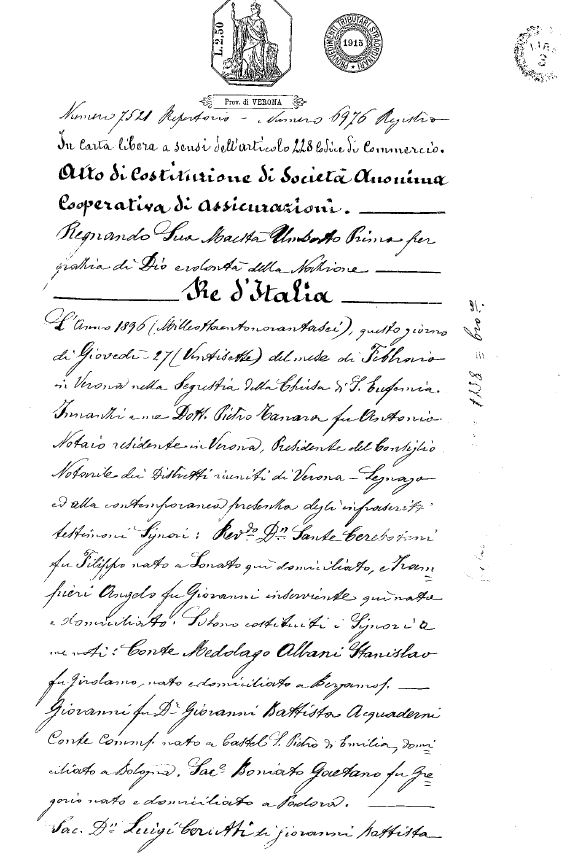 L. 2,50
PROVVEDIMENTI TRIBUTARI STRAORDINARI
1915
Prov. di VERONA
Numero 7521 Repertorio - Numero 6976 Registro
In carta libera a sensi dell'articolo 228 Codice di Commercio.
Atto di Costituzione di Società Anonima
Cooperativa di Assicurazioni.
Regnando Sua Maestà Umberto Primo per
grazia di Dio e volontà della Nazione
Re d'Italia
L'Anno 1896 (Milleottocentonovantasei), questo giorno
di Giovedì - 27 (Ventisette) del mese di Febbraio
in Verona nella Segrestia della Chiesa di S. Eufemia.
Innanzi a me Dott. Pietro Tanara fu Antonio
Notaio residente in Verona, Presidente del Consiglio
Notarile dei Distretti riuniti di Verona - Legnago
ed alla contemporanea presenza degli infrascritti
testimoni Signori: Rev.do Dn Sante
fu Filippo nato a Lonato qui domiciliato, e
Angelo fu Giovanni interviente qui nato
e domiciliato. Si sono costituiti i Signori a
me noti: Conte Medolago Albani Stanislao
fu Girolamo, nato e domiciliato a Bergamo.
Giovanni fu Dr Giovanni Battista Acquaderni
Conte Comm. nato a Castel S. Pietro di Emilia, domi
ciliato a Bologna. Sac. Boniato Gaetano fu Gre
gorio nato e domiciliato a Padova.
Sac. Dn Luigi Cerutti di Giovanni Battista